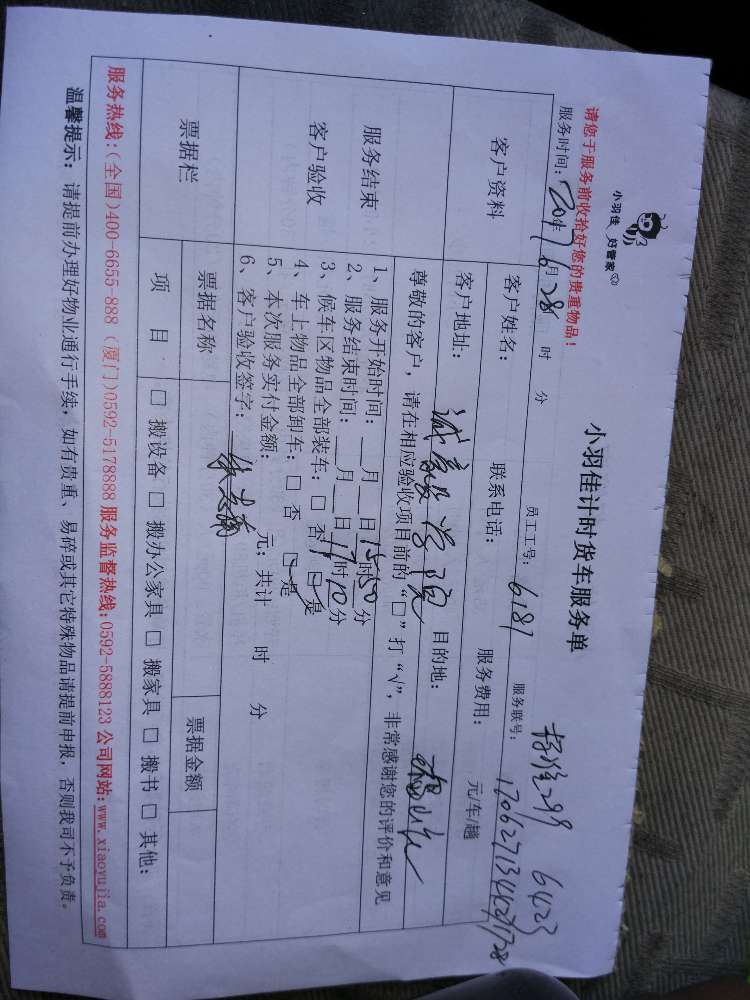 小羽佳 好管家
小羽佳计时货车服务单
请您于服务前收拾好您的贵重物品!
服务时间: 2017年6月28 时 分 员工工号: 6187 服务联号:
6423
客户资料
客户姓名: 联系电话: 服务费用: 元/车/趟
客户地址: 学院 目的地:
服务结束
客户验收
尊敬的客户, 请在相应验收项目前的“□”打“√”, 非常感谢您的评价和意见
1、服务开始时间: __月__日15时50分
2、服务结束时间: __月__日17时10分
3、候车区物品全部装车: □ 否 ☑ 是
4、车上物品全部卸车: □ 否 ☑ 是
5、本次服务实付金额: 元; 共计 时 分
6、客户验收签字:
票据栏
票据名称 票据金额
项 目 □ 搬设备 □ 搬办公家具 □ 搬家具 □ 搬书 □ 其他:
服务热线:(全国)400-6655-888 (厦门)0592-5178888 服务监督热线:0592-5888123 公司网站:www.xiaoyujia.com
温馨提示: 请提前办理好物业通行手续, 如有贵重、易碎或其它特殊物品请提前申报, 否则我司不予负责。